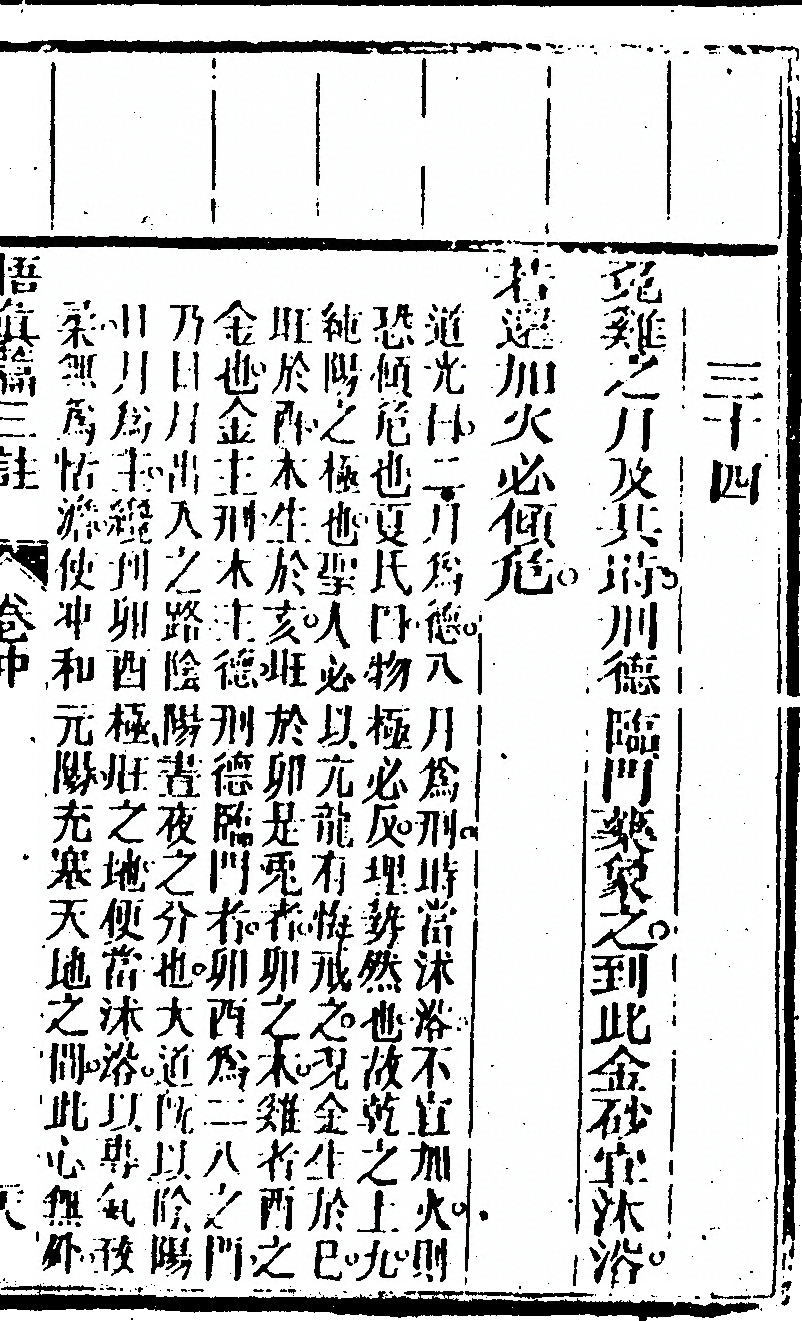 三十四
兔雞之月及其時刑德臨門藥象之到此金砂宜沐浴
若還加火必傾危
道光曰二月為德八月為刑時當沐浴不宜加火則
恐傾危也夏氏曰物極必反理勢然也故乾之上九
純陽之極也聖人必以亢龍有悔戒之況金生於巳
旺於酉木生於亥旺於卯是兎者卯之木雞者酉之
金也金主刑木主德刑德臨門者卯酉為二八之門
乃日月出入之路陰陽晝夜之分也大道既以陰陽
日月為主纔到卯酉極旺之地便當沐浴以專氣致
柔無為恬澹使冲和元陽充塞天地之間此心無外
悟真篇三註 卷中